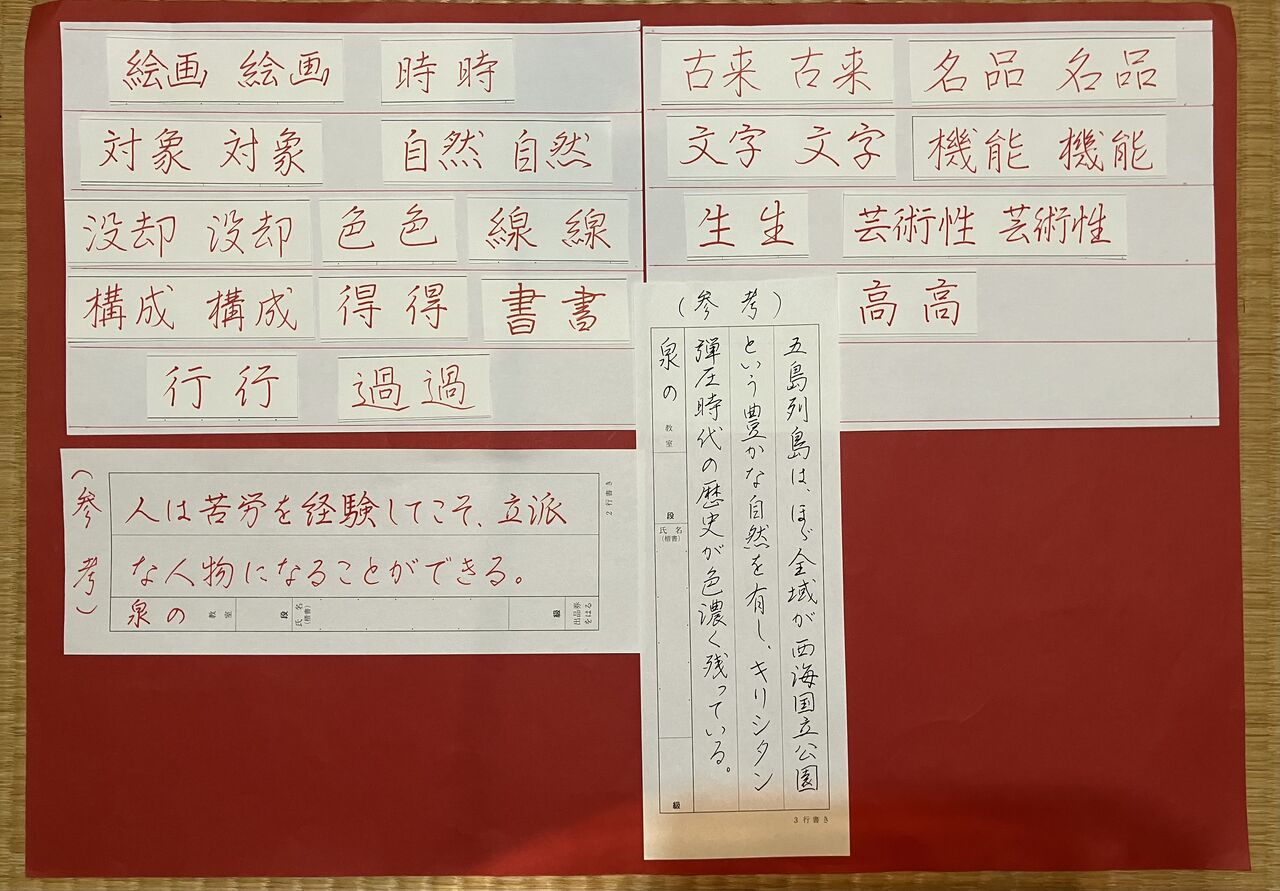 絵画 絵画 時 時
対象 対象 自然 自然
没却 没却 色 色 線 線
構成 構成 得 得 書 書
行 行 過 過
古来 古来 名品 名品
文字 文字 機能 機能
生 生 芸術性 芸術性
高 高
(参考)
2行書き
人は苦労を経験してこそ、立派
な人物になることができる。
泉の 教室 段 氏名(楷書) 級 出品券をはる
(参考)
五島列島は、ほゞ全域が西海国立公園
という豊かな自然を有し、キリシタン
弾圧時代の歴史が色濃く残っている。
泉の 教室 段 氏名(楷書) 級
3行書き